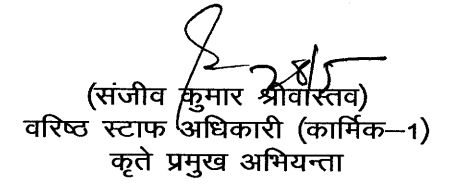 28/5
(संजीव कुमार श्रीवास्तव)
वरिष्ठ स्टाफ अधिकारी (कार्मिक–1)
कृते प्रमुख अभियन्ता